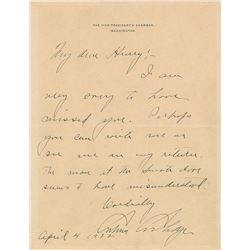 THE VICE PRESIDENT'S CHAMBER
WASHINGTON
My dear Henry:-
I am
very sorry to have
missed you. Perhaps
you can write me or
see me on my return.
The man at the door
seems to have misunderstood.
Cordially
Calvin Coolidge
April 4 192